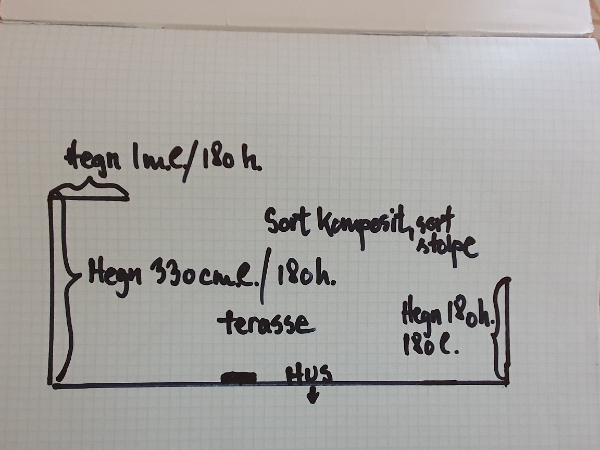 Hegn 1m.l./180h.
Sort Komposit, sort
stolpe
Hegn 330cm.l./180h.
terasse
Hegn 180h.
180l.
HUS